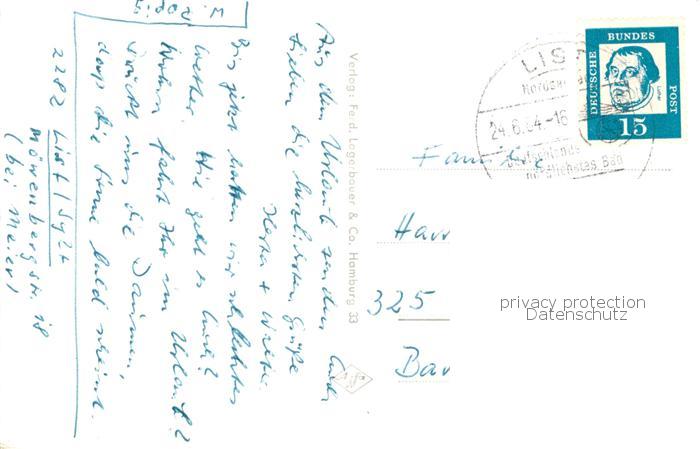 Aus dem Urlaub senden Euch
Lieben die herzlichsten Grüße
Herta + Walter.
Bis jetzt hatten wir schlechtes
Wetter. Wie geht es Euch?
Wohin fahrt Ihr im Urlaub?
Drückt uns die Daumen,
daß die Sonne bald scheint.
2282 List / Sylt
Möwenbergstr. 18
(bei Meier)
Verlag: Ferd. Lagerbauer & Co. Hamburg 33
LIS
Nordse
24.6.64.-16
Deutschlands
nördlichstes Bad
DEUTSCHE
BUNDES
POST
Luther
15
Familie
Han
325
Bar
privacy protection
Datenschutz